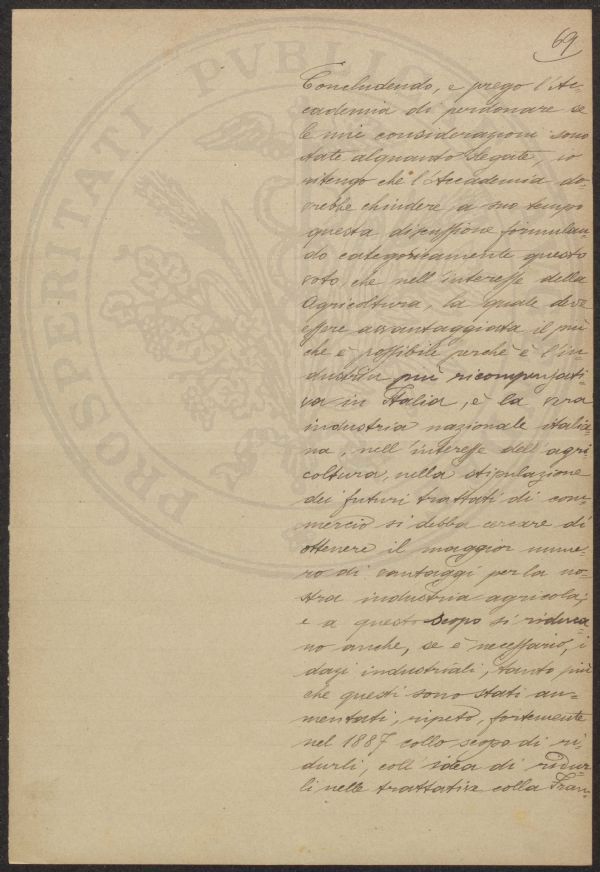 69
PROSPERITATI PVBLIC
Concludendo, e prego l'Ac-
cademia di perdonare se
le mie considerazioni sono
state alquanto slegate, io
ritengo che l'Accademia do-
vrebbe chiudere a suo tempo
questa discussione formulan-
do categoricamente questo
voto, che nell'interesse della
Agricoltura, la quale deve
essere avvantaggiata il più
che è possibile perchè è l'in-
dustria più ricompensati-
va in Italia, è la vera
industria nazionale italia-
na, nell'interesse dell'agri
coltura, nella stipulazione
dei futuri trattati di com-
mercio si debba cercare di
ottenere il maggior nume-
ro di vantaggi per la no-
stra industria agricola;
e a questo scopo si riduca
no anche, se è necessario, i
dazi industriali, tanto più
che questi sono stati au-
mentati, ripeto, fortemente
nel 1887 collo scopo di ri-
durli, coll'idea di ridur
li nelle trattative colla Fran-